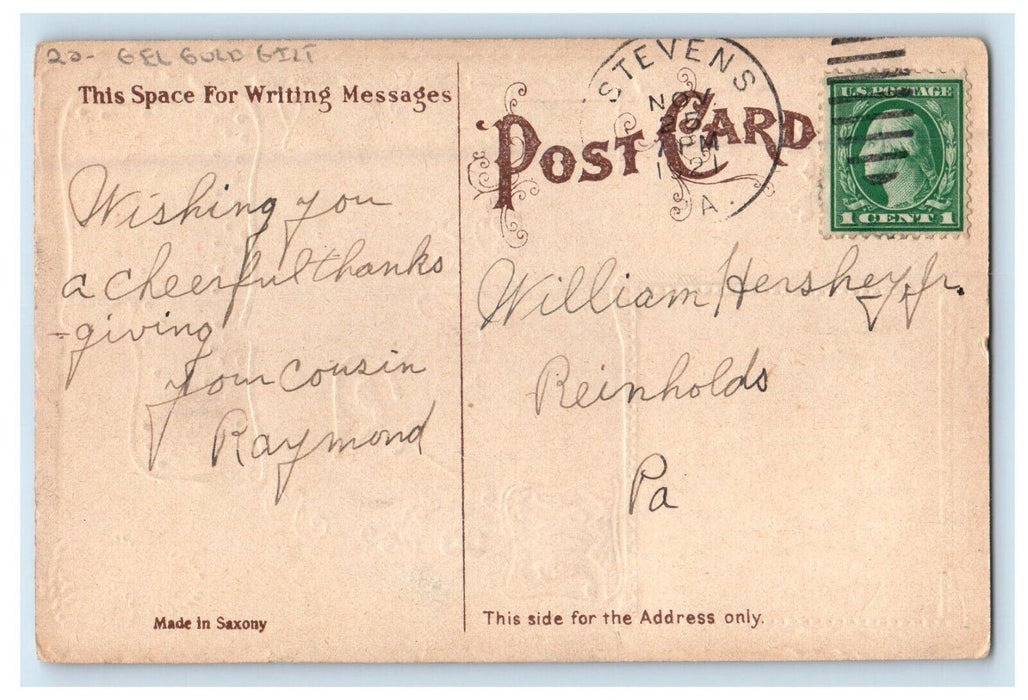 20- GEL GOLD GILT
This Space For Writing Messages
POST CARD
STEVENS
NOV
PM
1921
A.
U.S. POSTAGE
1 CENT 1
Wishing you
a cheerful thanks
-giving
your cousin
Raymond
William Hershey, Jr.
Reinholds
Pa
Made in Saxony
This side for the Address only.